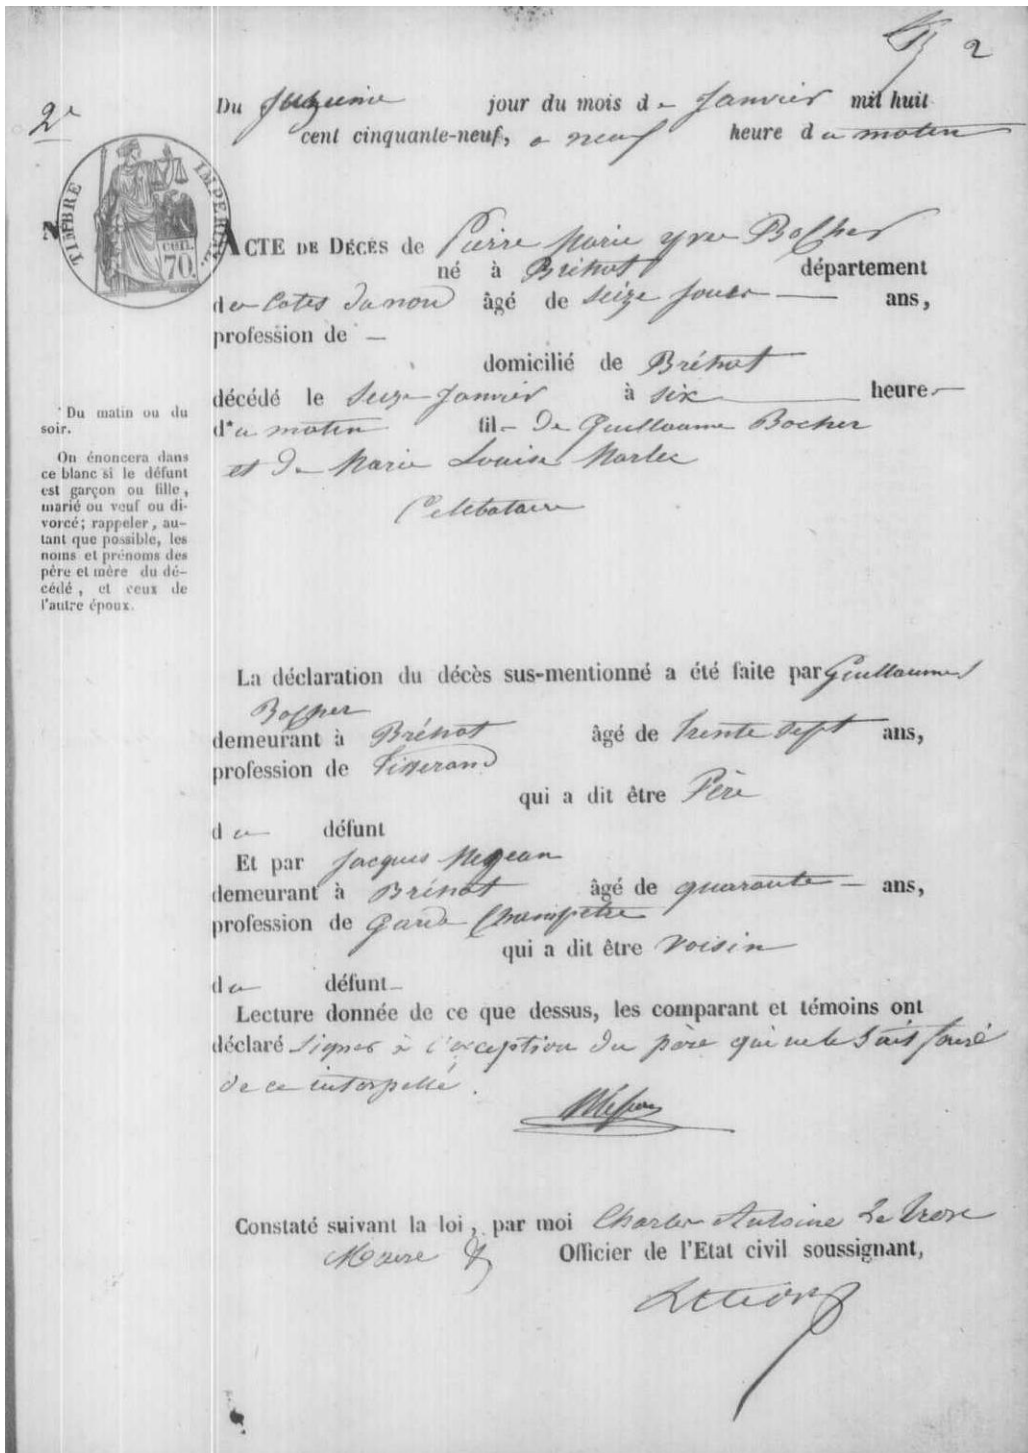 2
2e
Du seizieme jour du mois de Janvier mil huit
cent cinquante-neuf, a neuf heure du matin
TIMBRE IMPERIAL
70 cen.
N
ACTE DE DÉCÈS de Pierre Marie Yves Bocher
né à Bréhat département
des Cotes du nord âgé de seize jours — ans,
profession de —
domicilié de Bréhat
décédé le seize Janvier à six heures
d*u matin fil- de Guillaume Bocher
et de Marie Louise
Celibataire
* Du matin ou du
soir.
On énoncera dans
ce blanc si le défunt
est garçon ou fille,
marié ou veuf ou di-
vorcé; rappeler, au-
tant que possible, les
noms et prénoms des
père et mère du dé-
cédé, et ceux de
l'autre époux.
La déclaration du décès sus-mentionné a été faite par Guillaume
Bocher
demeurant à Bréhat âgé de trente sept ans,
profession de Tisserand
qui a dit être Père
du défunt
Et par Jacques
demeurant à Bréhat âgé de quarante — ans,
profession de Garde Champetre
qui a dit être voisin
du défunt
Lecture donnée de ce que dessus, les comparant et témoins ont
déclaré signer à l'exception du père qui ne le sait
de ce interpellé.
Constaté suivant la loi, par moi Charles Antoine
Maire Officier de l'Etat civil soussignant,